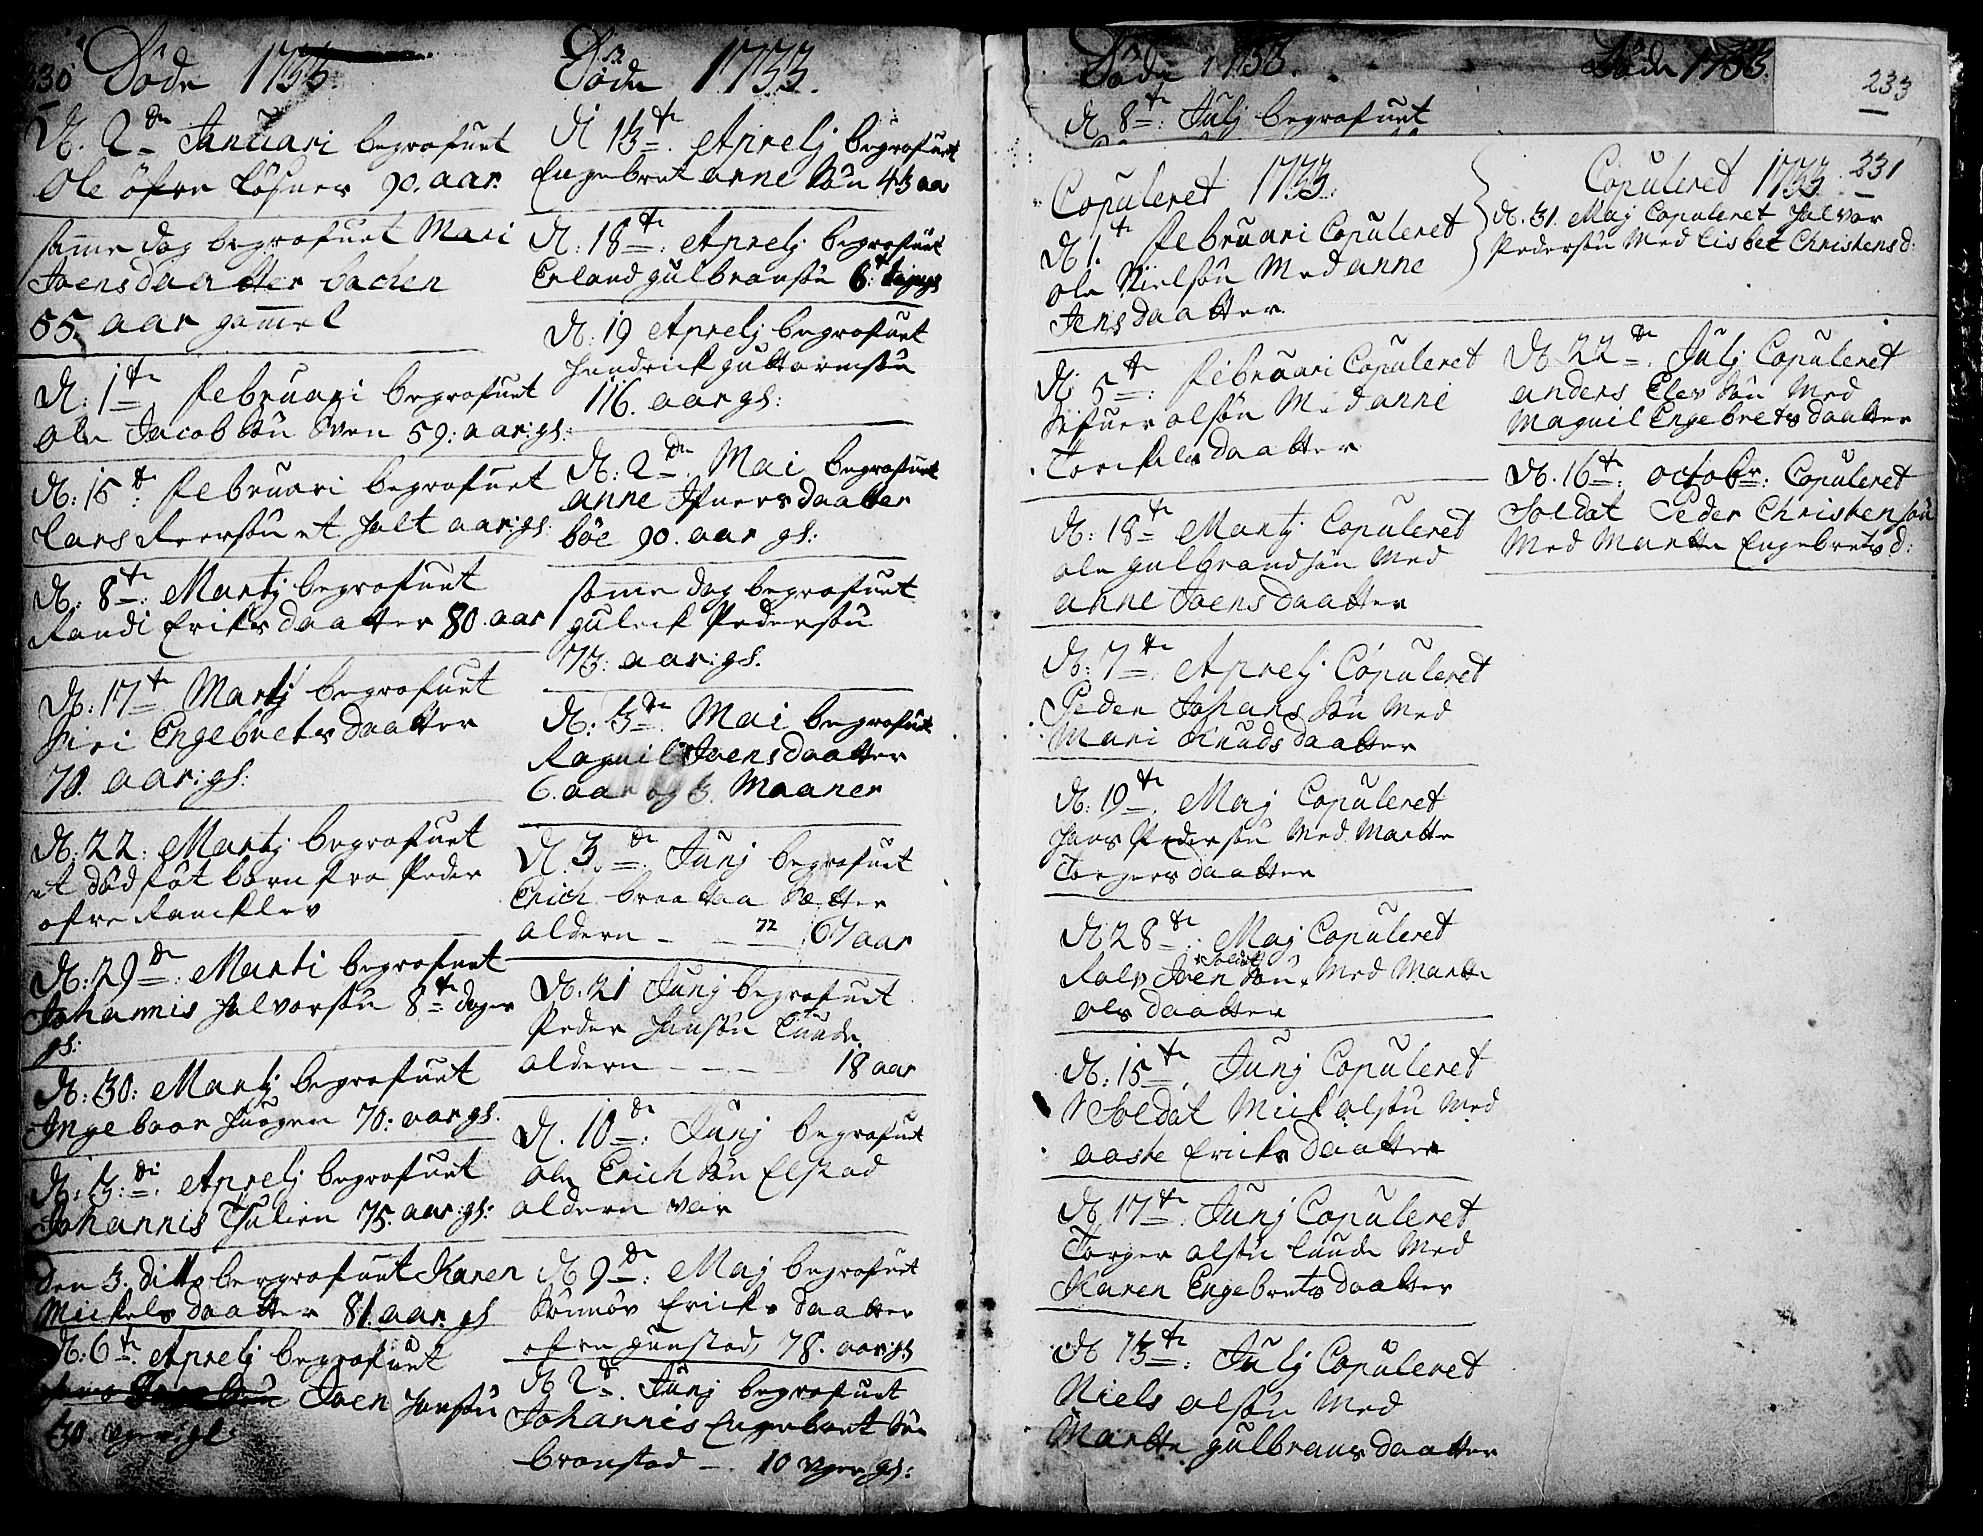 230
Döde 1733.
D. 2den Januari begrafuet
Ole öfre Lösnes 90. aar.
samme dag begrafuet Mari
Joensdaatter bachen
55. aar gammel
D: 1te Februari begrafuet
Ole Jacobsøn Sven 59: aar: gl:
D: 15te Februari begrafuet
Lars Iversøn et halt aar: gl:
D: 8te: Martj begrafuet
Randi Eriksdaatter 80. aar
D: 17te Martj begrafuet
Siri Engebretsdaatter
70. aar: gl:
D: 22: Martj begrafuet
et död föt barn fra Peder
ofre
D: 29de: Marti begrafuet
Johannis Halvorsøn 8te dager
gl:
D: 30: Martj begrafuet
Ingebaar Haagen 70: aar gl.
D: 3de: Aprelj begrafuet
Johannis Thulien 75. aar: gl:
den 3. ditto bergrafuet Karen
Mickelsdaatter 81. aar. gl
D: 6te. Aprelj begrafuet
Joen Hansøn
30. uger: gl:
Döde 1733.
D 13te. Aprelj begrafuet
Engebret Arnesøn 43 aar
D: 18te: Aprelj begrafuet
Erland gulbransøn 6:
D: 19 Aprelj begrafuet
Hendrick guttormsøn
116. aar gl:
D: 2den Mai begrafuet
anne Ifuersdaatter
böe 90. aar gl:
samme dag begrafuet
gulick Pedersøn
73: aar: gl.
D: 3de. Mai begrafuet
Ragnil Joensdaatter
6. aar og 3. Maaner
D. 3de: Junj begrafuet
Erich braataa sætter
aldern - - 72 67 aar
D. 21 Junj begrafuet
Peder Hansøn Lunde
aldern - - - 18 aar
D. 10de: Junj begrafuet
ole Erichsøn Elstad
aldern var
D 9de: Maj begrafuet
Sönnöv Ericksdaatter
ofre gunstad, 78. aar gl
D 2de. Junj begrafuet
Johannes Engebretsøn
bronstad - 10 uger gl:
Döde 1733.
D 8te: Julj begrafuet
Döde 1733.
233
Copuleret 1733.
D 1te Februari Copuleret
ole Nielsøn Med anne
Jensdaatter
D: 5te: Februari Copuleret
Sifuer olsøn Med anne
Torkilsdaatter
D: 18te Martj Copuleret
ole gulbrandsøn Med
anne Joensdaatter
D: 7te. Aprelj Copuleret
Peder Johansøn Med
Mari Knudsdaatter
D: 19te. Maj Copuleret
Hans Pedersøn Med Martte
Torgersdaatter
D 28de: Maj Copuleret
Soldat
Rals Joensøn, Med Marte
olsdaatter
D: 15te. Junj Copuleret
Soldat Mick olsøn Med
aaste Eriksdaatter
D 17te. Junj Copuleret
Torger olsøn Lunde Med
Karen Engebretsdaatter
D 13te: Julj Copuleret
Niels olsøn Med
Martte gulbransdaatter
Copuleret 1733. 231
D. 31. Maj Copuleret Halvor
Pedersøn Med Lisbet Christensd:
D 22de. Julj Copuleret
anders Elevsøn Med
Magnil Engebretsdaatter
D. 16te: octobr: Copuleret
Soldat Peder Christensøn
Med Marthe Engebretsd: